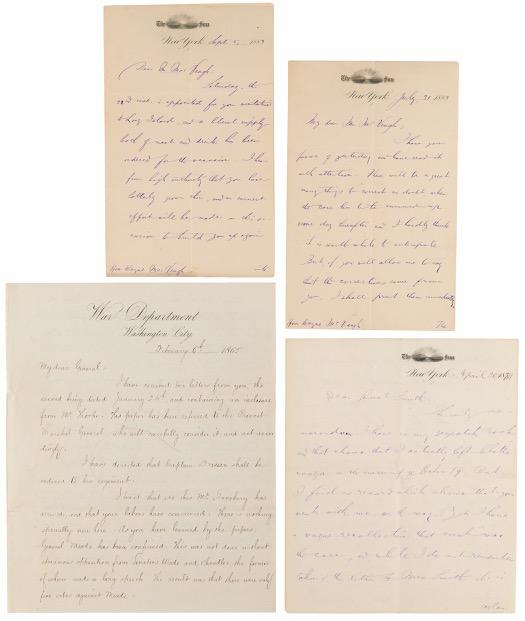 The Sun
New York Sept 5, 1883
Dear Mr Mac Veagh,
Saturday, the
22nd inst. is appointed for your initiation
to Long Island, and a liberal supply
both of meat and drink has been
ordered for the occasion. I hear
from high authority that you have
lately gone thin, and an earnest
effort will be made on this oc-
casion to build you up again
Hon Wayne Mac Veagh
The Sun
New York July 21 1883
My dear Mr Mac Veagh,
I have your
favor of yesterday and have read it
with attention. There will be a great
many things to correct no doubt when
the case has to be summed up
some day hereafter and I hardly think
it is worth while to anticipate.
But if you will allow me to say
that the corrections come from
you, I shall print them immediately
Hon Wayne Mac Veagh
War Department
Washington City,
February 6th 1865
My dear General:
I have received two letters from you, the
second being dated January 26th and containing an inclosure
from Mr. The paper has been referred to the Provost
Marshal General, who will carefully consider it and act accor-
dingly.
I have directed that Captain shall be
ordered to his regiment.
I trust that ere this Mr. has
arrived, and that your labors have commenced. There is nothing
specially new here. As you have learned by the papers,
General Meade has been confirmed. This was not done without
strenuous opposition from Senators Wade and Chandler, the former
of whom made a long speech. The result was that there were only
five votes against Meade.
The Sun
New York April 20
Dear General Smith:
I have in my despatch book
and that shows that I actually left
on the morning of October 19. But
I find no record which shows that you
were with me on the way. Yet I have
a vague recollection that such was
the case, and while I do not remember
the letter to Smith it is